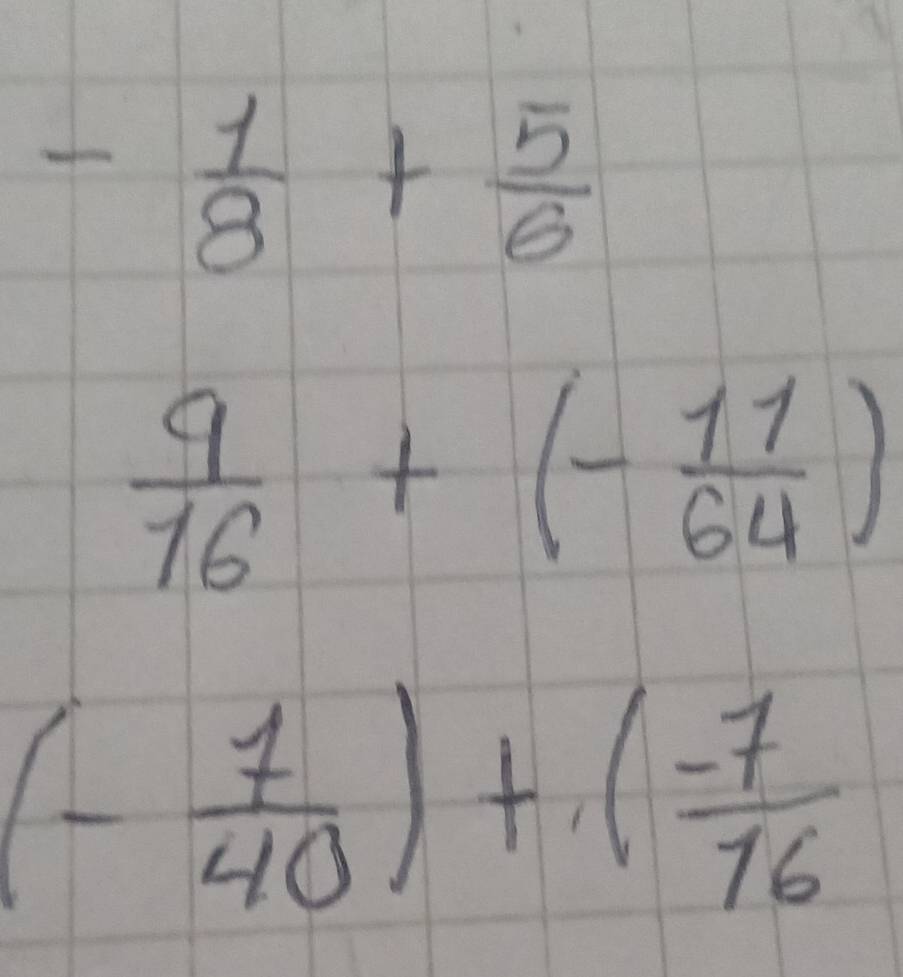 - 1/8 + 5/6
9/16 + (- 11/64)
(- 7/40) + (-7/16